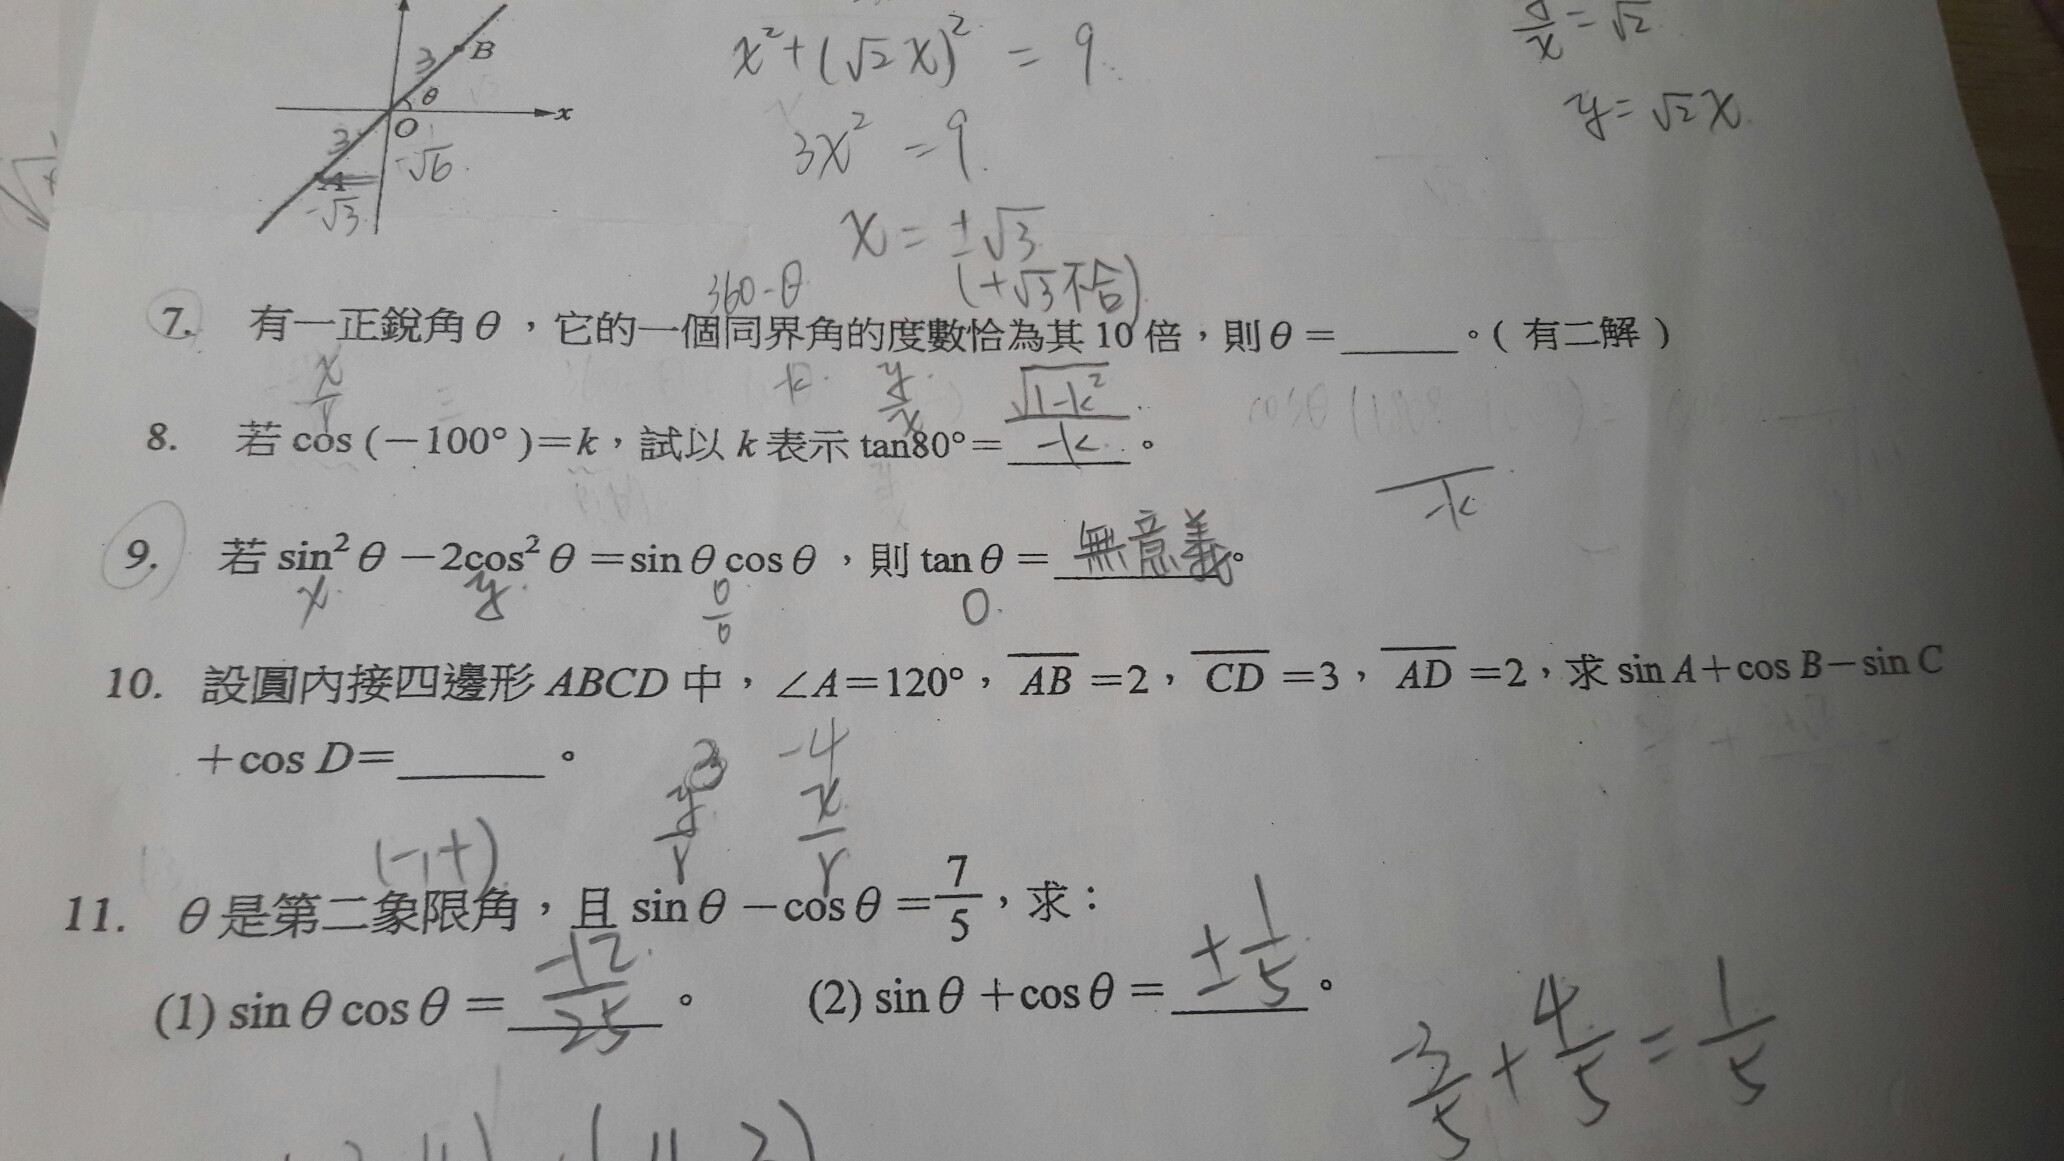 B
3
θ
x
O
3
-√6
A
-√3
x²+(√2x)²=9
3x²=9
x=±√3
(+√3不合)
y/x=√2
y=√2x
360-θ
7. 有一正銳角θ，它的一個同界角的度數恰為其10倍，則θ=______。(有二解)
x/r
-k
y/x
8. 若cos(-100°)=k，試以k表示tan80°=√(1-k²)/-k。
-k
9. 若sin²θ-2cos²θ=sinθcosθ，則tanθ=無意義。
x
y
0/0
0
10. 設圓內接四邊形ABCD中，∠A=120°，AB=2，CD=3，AD=2，求sinA+cosB-sinC
+cosD=______。
3
-4
y/r
x/r
(-,+)
11. θ是第二象限角，且sinθ-cosθ=7/5，求：
(1) sinθcosθ=-12/25。 (2) sinθ+cosθ=±1/5。
-3/5+4/5=1/5